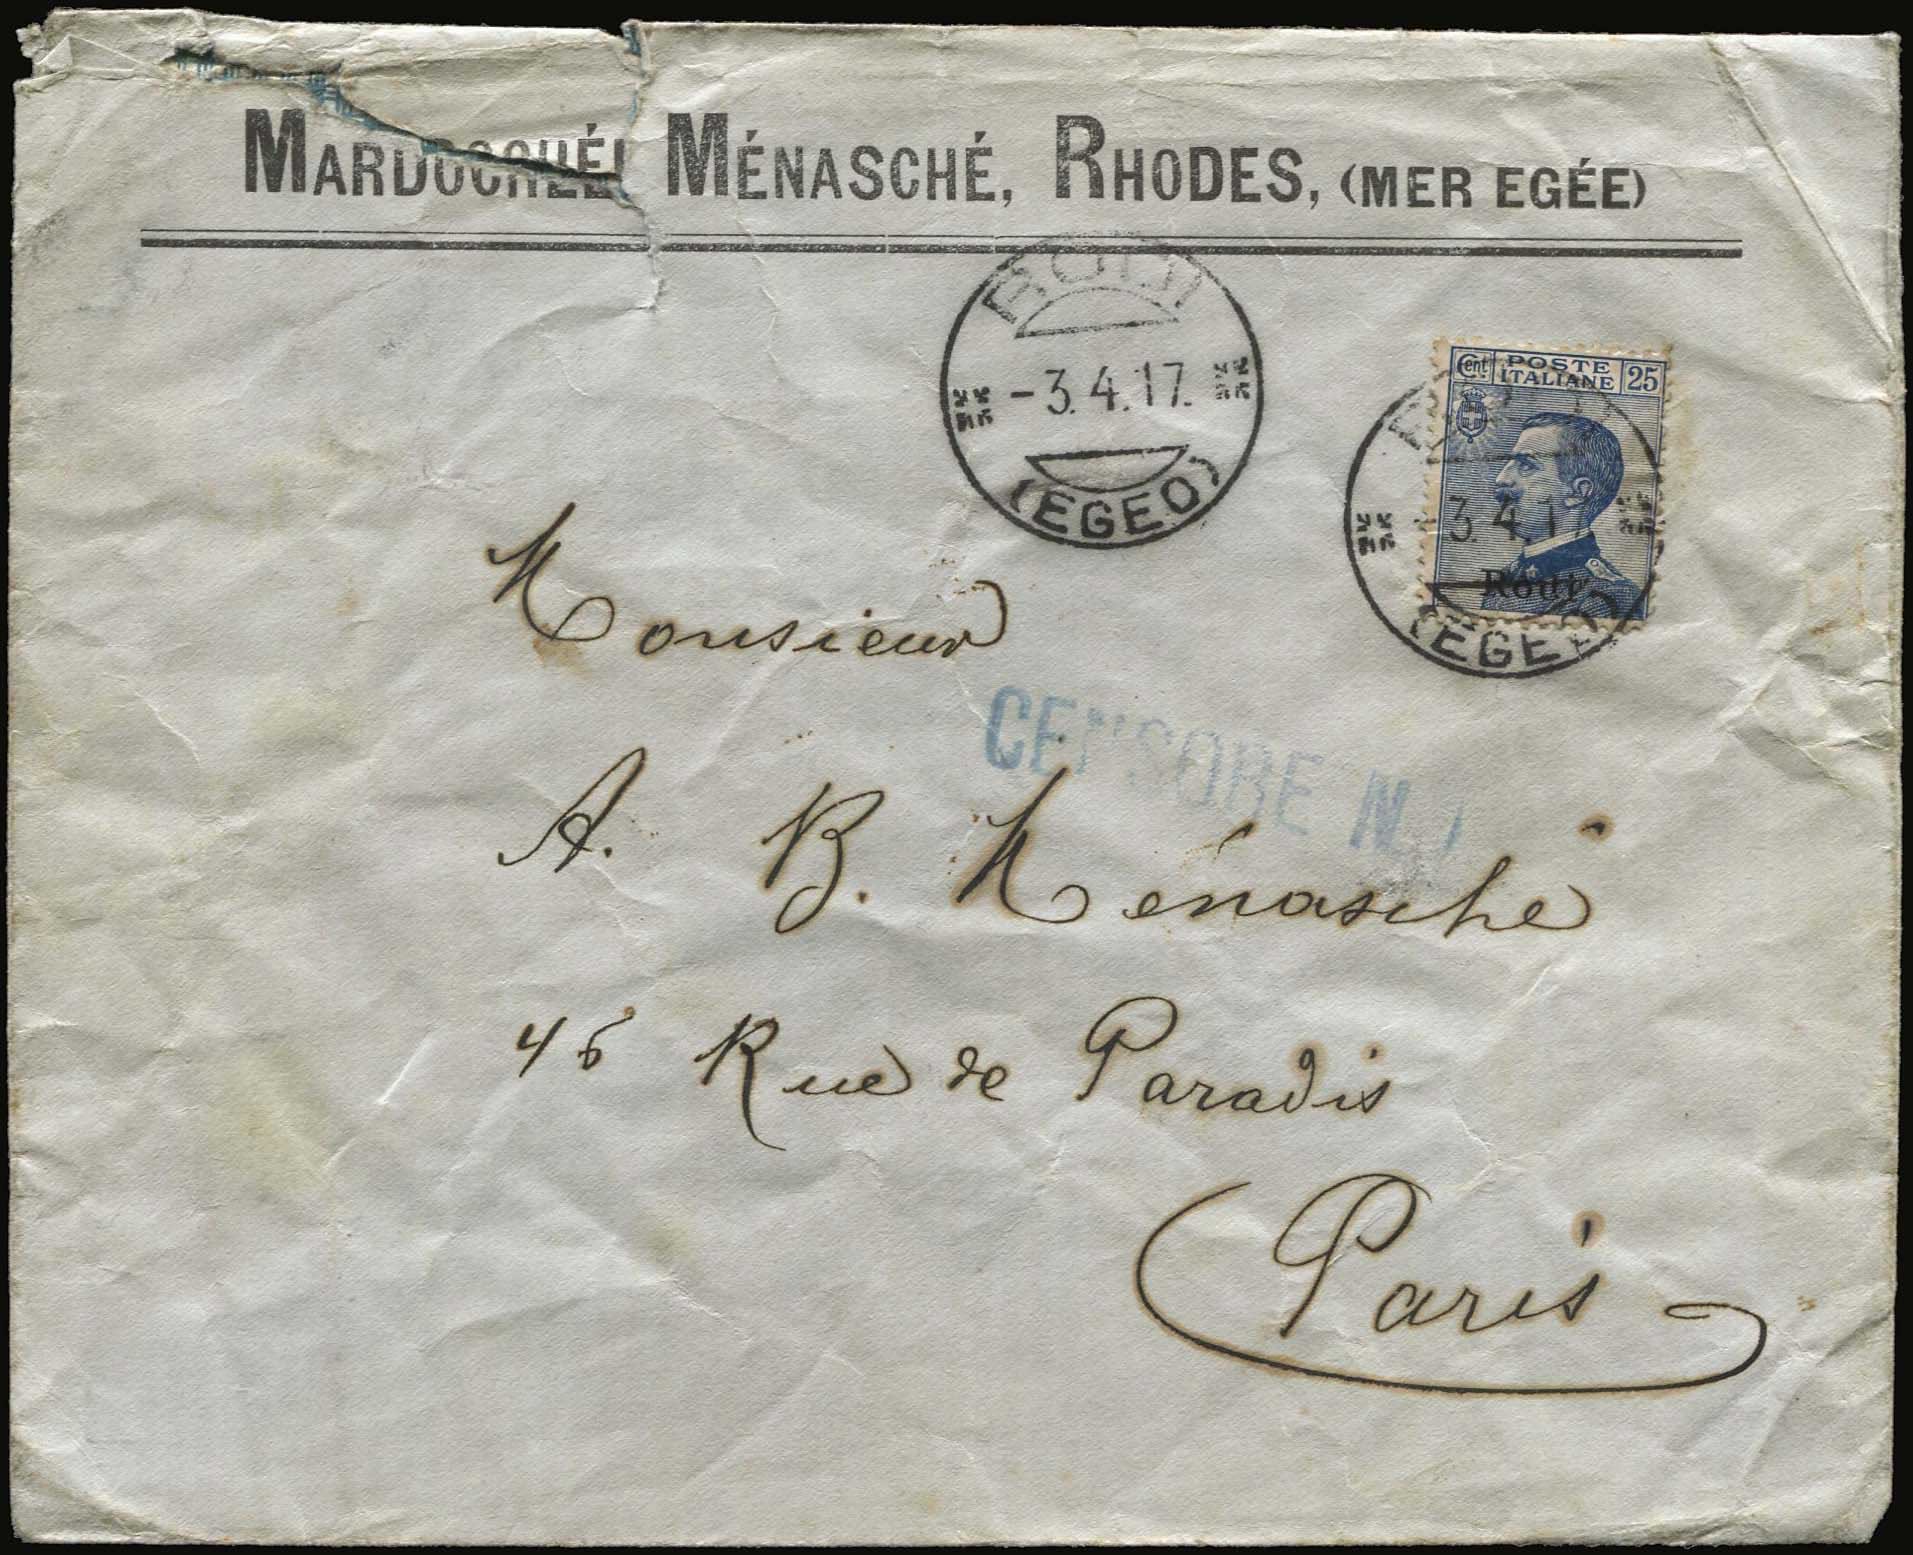 MARDOCHÉE MÉNASCHÉ, RHODES, (MER EGÉE)
RODI
-3.4.17.
(EGEO)
Cent POSTE ITALIANE 25
3.4.17
Rodi
(EGEO)
Monsieur
CENSORE N
A. B. Ménasché
46 Rue de Paradis
Paris